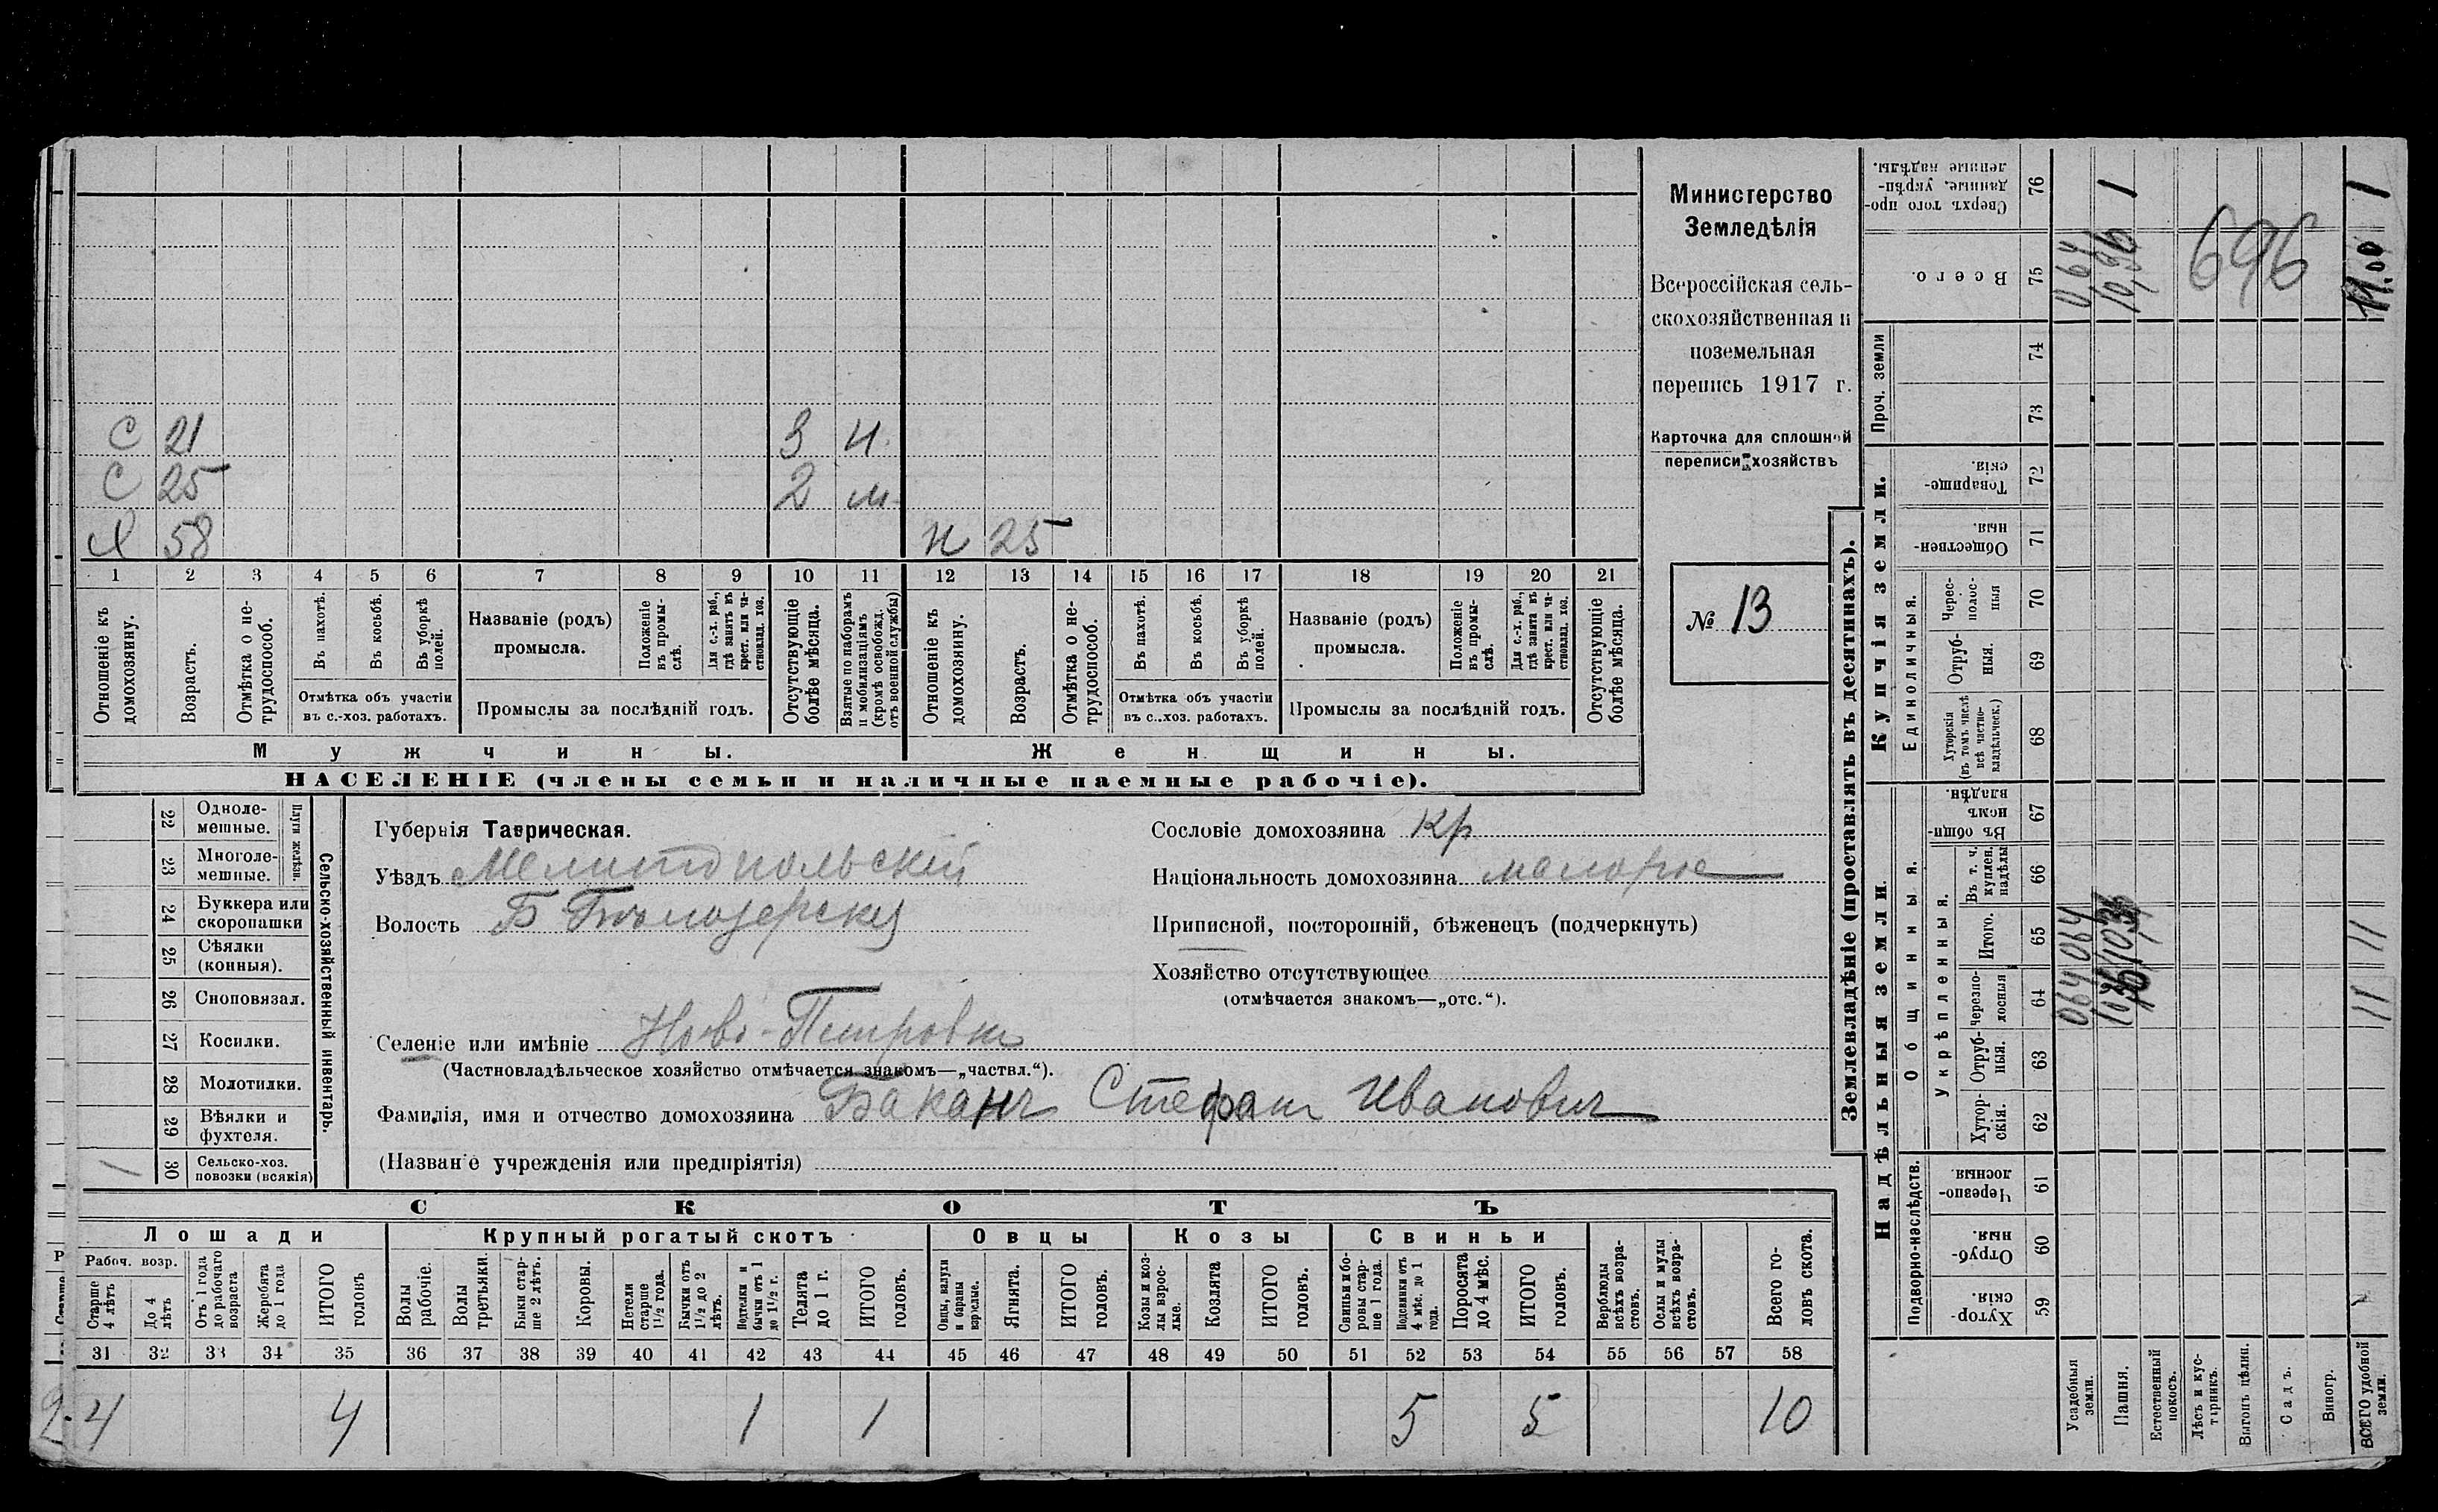 Министерство
Земледѣлія
Всероссійская сель-
скохозяйственная и
поземельная
перепись 1917 г.
Карточка для сплошной
переписи хозяйствъ
№ 13
С 21 3 М.
С 25 2 М.
Х 58 Ж 25
1 2 3 4 5 6 7 8 9 10 11 12 13 14 15 16 17 18 19 20 21
Отношеніе къ домохозяину.
Возрастъ.
Отмѣтка о не-трудоспособ.
Въ пахотѣ.
Въ косьбѣ.
Въ уборкѣ полей.
Отмѣтка объ участіи
въ с.-хоз. работахъ.
Названіе (родъ)
промысла.
Положеніе въ промы-слѣ.
Для с.-х. раб., гдѣ занятъ въ крест. или ча-ствовлад. хоз.
Промыслы за послѣдній годъ.
Отсутствующіе болѣе мѣсяца.
Взятые по наборамъ и мобилизаціямъ (кромѣ освобожд. отъ военной службы)
Отношеніе къ домохозяину.
Возрастъ.
Отмѣтка о не-трудоспособ.
Въ пахотѣ.
Въ косьбѣ.
Въ уборкѣ полей.
Отмѣтка объ участіи
въ с..хоз. работахъ.
Названіе (родъ)
промысла.
Положеніе въ промы-слѣ.
Для с.-х. раб., гдѣ занята въ крест. или ча-ствовлад. хоз.
Промыслы за послѣдній годъ.
Отсутствующіе болѣе мѣсяца.
Мужчины.
Женщины.
НАСЕЛЕНІЕ (члены семьи и наличные наемные рабочіе).
Сельско-хозяйственный инвентарь.
Плуги желѣзн.
22 Одноле-мешные.
23 Многоле-мешные.
24 Буккера или скоропашки
25 Сѣялки (конныя).
26 Сноповязал.
27 Косилки.
28 Молотилки.
29 Вѣялки и фухтеля.
30 Сельско-хоз. повозки (всякія) 1
Губернія Таврическая.
Уѣздъ Мелитопольскій
Волость Б Бѣлозерская
Селеніе или имѣніе Ново-Петровка
(Частновладѣльческое хозяйство отмѣчается знакомъ—„частвл.“).
Фамилія, имя и отчество домохозяина Баканъ Стефанъ Ивановичъ
(Названіе учрежденія или предпріятія)
Сословіе домохозяина Кр
Національность домохозяина малорос
Приписной, посторонній, бѣженецъ (подчеркнуть)
Хозяйство отсутствующее
(отмѣчается знакомъ—„отс.“).
СКОТЪ
Лошади
Крупный рогатый скотъ
Овцы
Козы
Свиньи
Рабоч. возр.
Старше 4 лѣтъ
До 4 лѣтъ
Отъ 1 года до рабочаго возраста
Жеребята до 1 года
ИТОГО головъ
Волы рабочіе.
Волы третьяки.
Быки стар-ше 2 лѣтъ.
Коровы.
Нетели старше 1½ года.
Бычки отъ 1½ до 2 лѣтъ.
Подтелки и бычки отъ 1 до 1½ г.
Телята до 1 г.
ИТОГО головъ.
Овцы, валухи и бараны взрослые.
Ягнята.
ИТОГО головъ.
Козы и коз-лы взрос-лые.
Козлята
ИТОГО головъ.
Свиньи и бо-ровы стар-ше 1 года.
Подсвинки отъ 4 мѣс. до 1 года.
Поросята до 4 мѣс.
ИТОГО головъ.
Верблюды всѣхъ возра-стовъ.
Ослы и мулы всѣхъ возра-стовъ.
Всего го-ловъ скота.
31 32 33 34 35 36 37 38 39 40 41 42 43 44 45 46 47 48 49 50 51 52 53 54 55 56 57 58
4 4 1 1 5 5 10
Землевладѣніе (проставлять въ десятинахъ).
Надѣльныя земли.
Купчія земли.
Проч. земли
Подворно-наслѣдств.
Общинныя.
Укрѣпленныя.
Единоличныя.
Хутор-скія. 59
Отруб-ныя. 60
Черезпо-лосныя 61
Хутор-скія. 62
Отруб-ныя. 63
Черезпо-лосныя 64
Итого. 65
Въ т. ч. куплен. надѣлы 66
Въ общи-номъ владѣн. 67
Хуторскія (въ томъ числѣ всѣ частно-владѣльческ.) 68
Отруб-ныя. 69
Черес-полос-ныя 70
Обществен-ныя. 71
Товарище-скія. 72
73
74
Всего. 75
Сверхъ того про-данные, укрѣп-ленные надѣлы. 76
Усадебныя земли. 064 064 0 64
Пашня. 10,36 10,36 10,96 1
Естественный покосъ.
Лѣсъ и кус-тарникъ.
Выгонъ цѣлин.
Садъ.
Виногр.
ВСЕГО удобной земли. 11 11 11.00 1
696